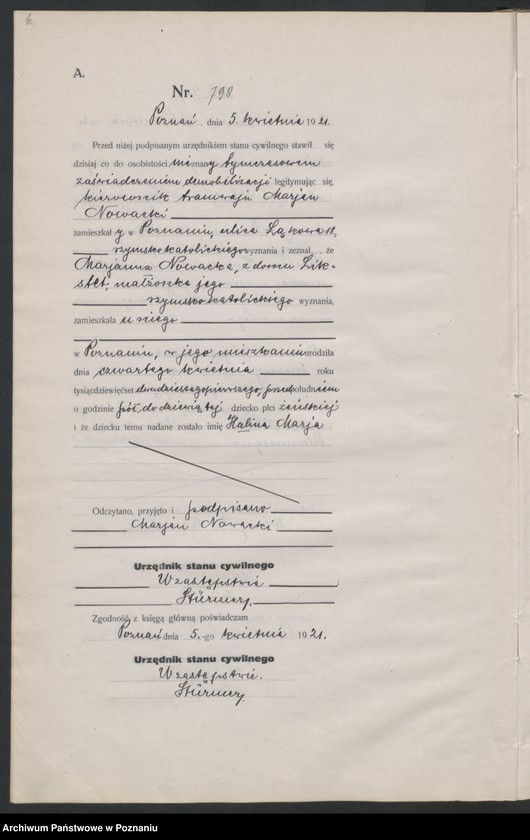 6.
A.
Nr. 798
Poznań, dnia 5. kwietnia 1921.
Przed niżej podpisanym urzędnikiem stanu cywilnego stawił się
dzisiaj co do osobistości nieznany tymczasowem
zaświadczeniem demobilizacji legitymując się,
kierownik tramwaju Marjan
Nowacki
zamieszkały w Poznaniu, ulica Łąkowa 18,
rzymsko katolickiego wyznania i zeznał, że
Marjanna Nowacka, z domu Lik-
stet, małżonka jego
rzymsko katolickiego wyznania,
zamieszkała u niego
w Poznaniu, w jego mieszkaniu urodziła
dnia czwartego kwietnia roku
tysiącdziewięćset dwudziestego pierwszego, przed południem
o godzinie pół do dziewiątej dziecko płci żeńskiej
i że dziecku temu nadane zostało imię Halina Marja
Odczytano, przyjęto i podpisano
Marjan Nowacki
Urzędnik stanu cywilnego
W zastępstwie
Stürmer.
Zgodność z księgą główną poświadczam
Poznań dnia 5.-go kwietnia 1921.
Urzędnik stanu cywilnego
W zastępstwie.
Stürmer.
Archiwum Państwowe w Poznaniu